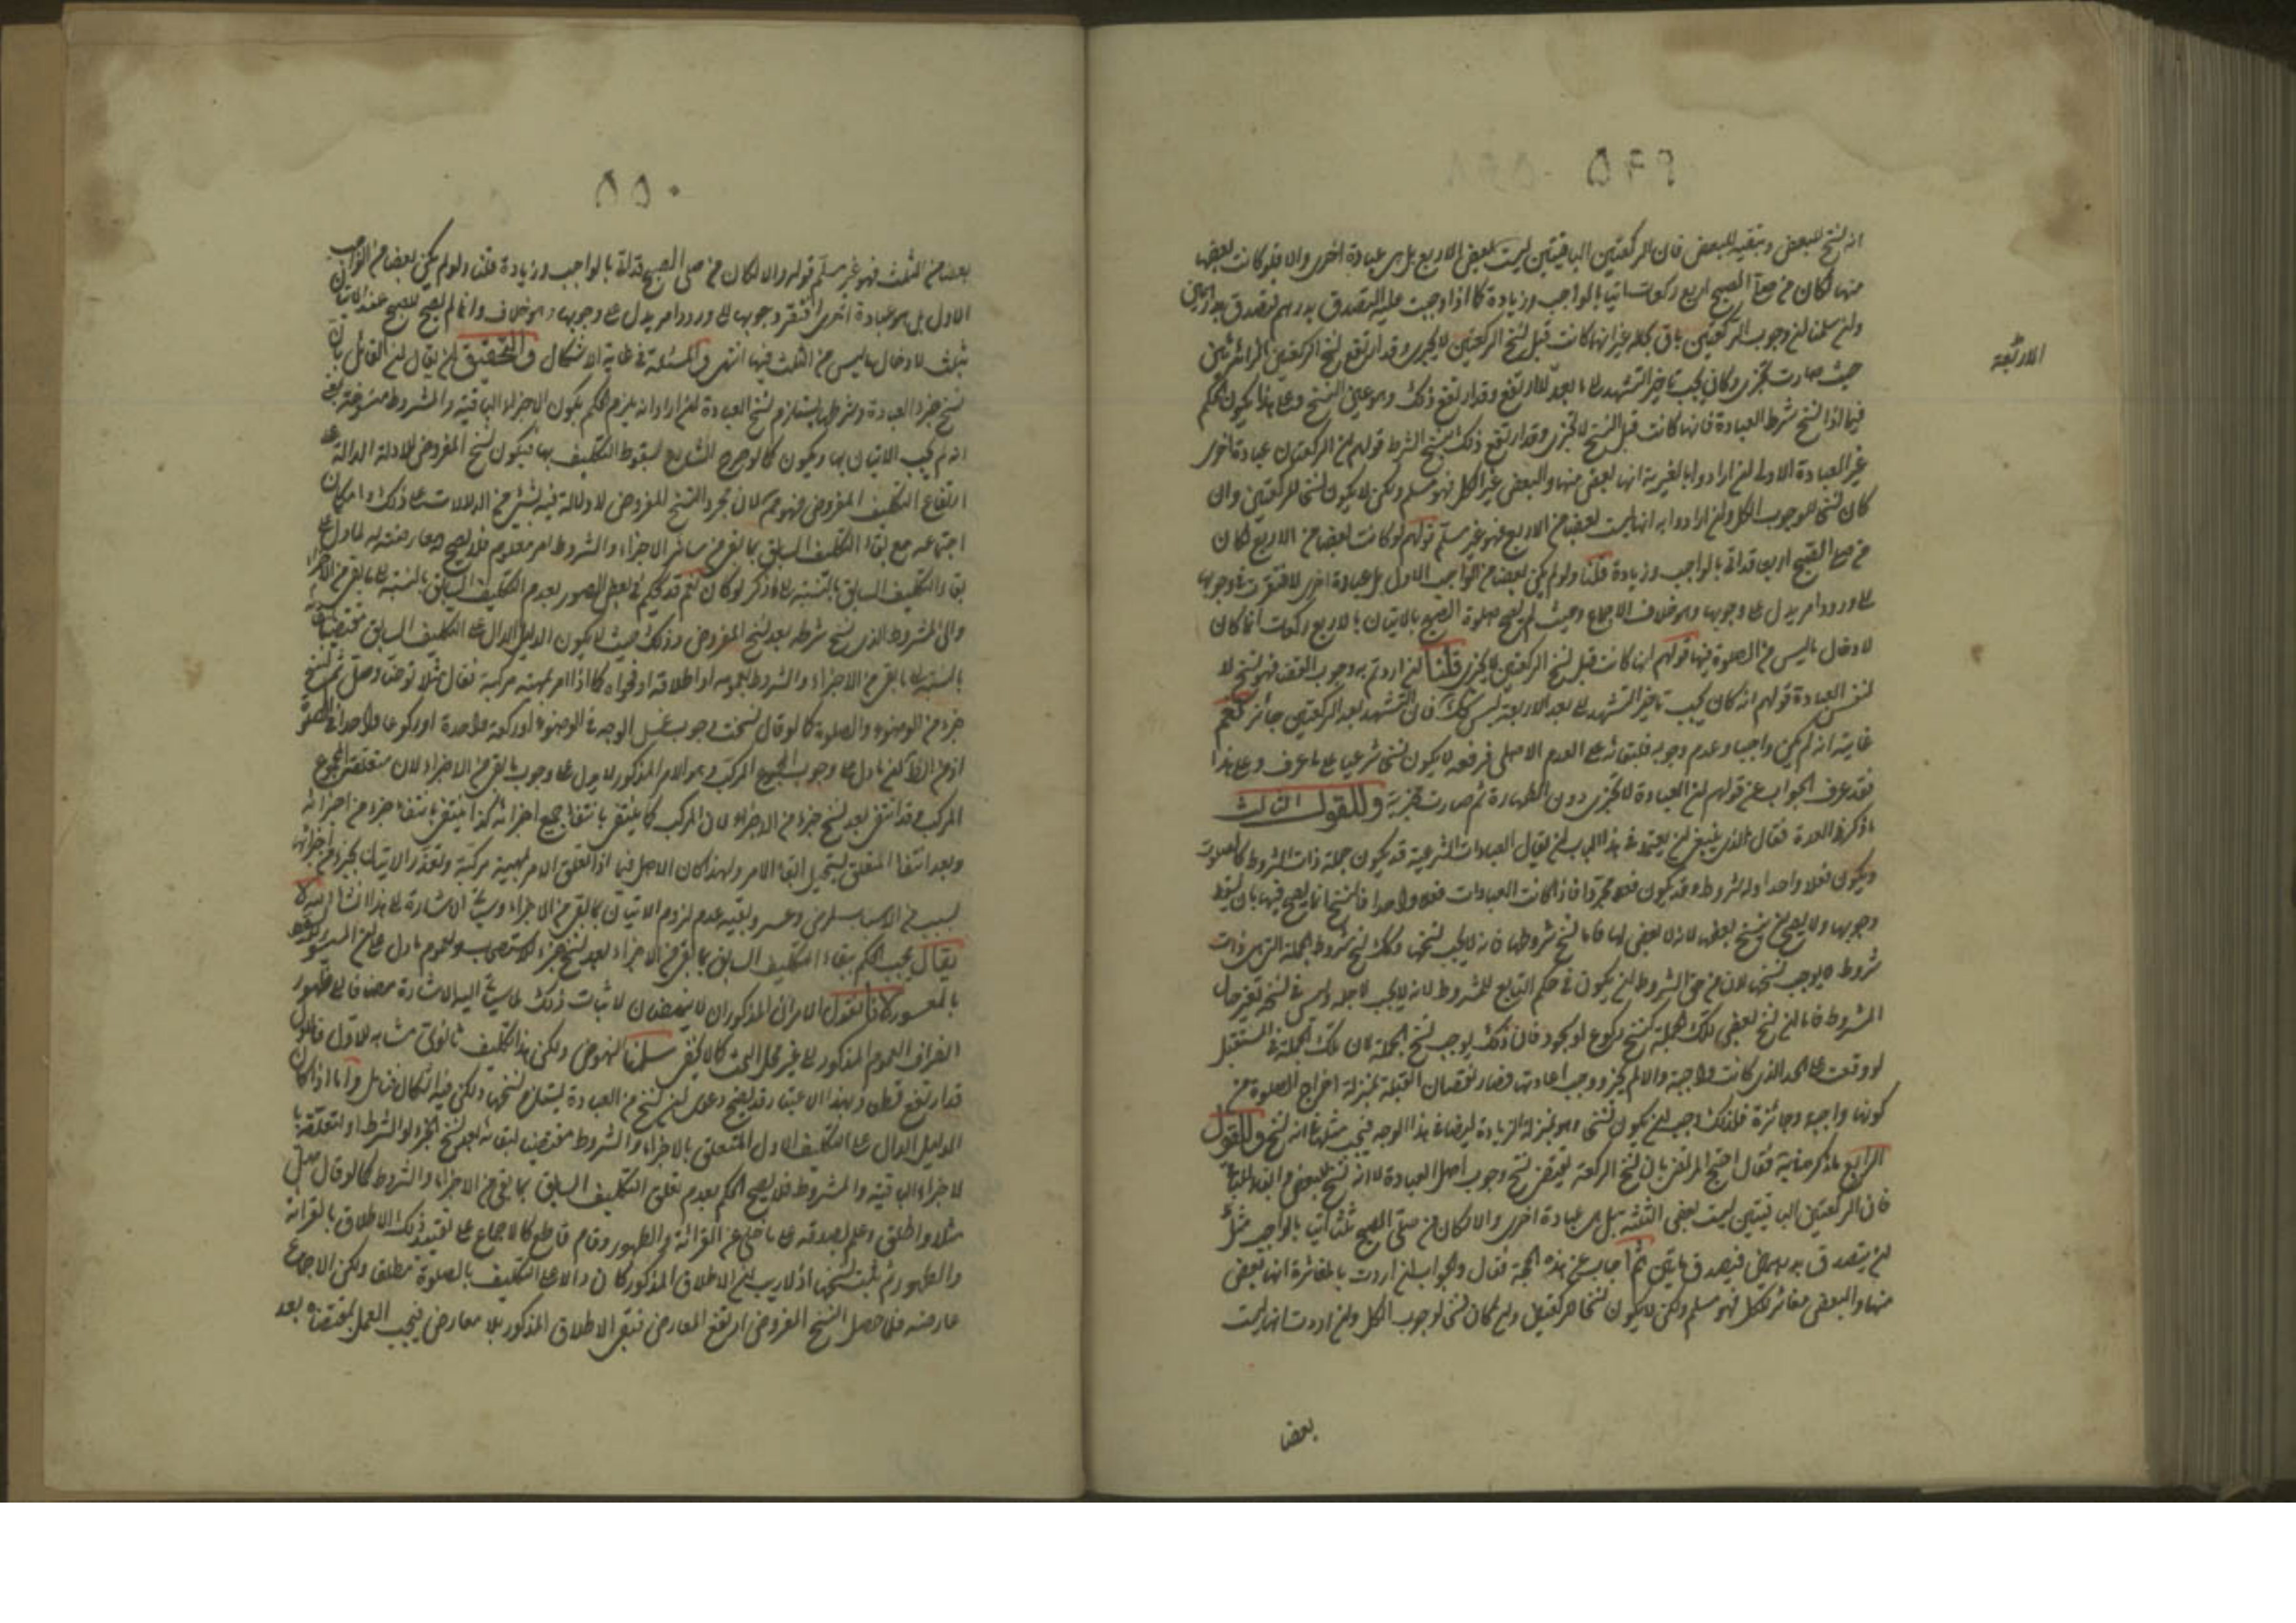 ٥٤٩
انه نسخ للبعض وتبقية للبعض فان الركعتين الباقيتين ليست بعض الاربع بل هي عبادة اخرى والا فلو كانت بعضها
منها لكان من صلى الصبح اربع ركعات اتيا بالواجب وزيادة كما اذا وجبت عليه التصدق بدرهم فتصدق بدرهمين
ولئن سلمنا ان وجوب الركعتين باق بحاله غير انها كانت قبل نسخ الركعتين لا يجزى وقد ارتفع نسخ الركعتين الزائدتين
حيث صارت تجزى وكان يجب تاخير التشهد الى ما بعد الاربع وقد ارتفع ذلك وهو عين النسخ وعلى هذا يكون الحكم
الاربعة
فيما اذا نسخ شرط العبادة فانها كانت قبل النسخ لا تجزى وقد ارتفع ذلك بنسخ الشرط قولهم ان الركعتين عبادة اخرى
غير العبادة الاولى ان ارادوا بالغيرية انها بعض منها والبعض غير الكل فهو مسلم ولكن لا يكون نسخا للركعتين وان
كان نسخا لوجوب الكل وان ارادوا به انها ليست بعضا من الاربع فهو غير مسلم قولهم لو كانت بعضا من الاربع لكان
من صلى الصبح اربعا قد اتى بالواجب وزيادة قلنا ولو لم يكن بعضا من الواجب الاول بل عبادة اخرى لافتقرت في وجوبها
الى ورود امر يدل على وجوبها وهو خلاف الاجماع وحيث لم يصح صلوة الصبح بالاتيان بالاربع ركعات انما كان
لادخال ما ليس من الصلوة فيها قولهم انها كانت قبل نسخ الركعتين لا يجزى قلنا ان اردتم به وجوب القضاء فهو نسخ لا
لنفس العبادة قولهم انه كان يجب تاخير التشهد الى بعد الاربعة ليس كذلك فان التشهد بعد الركعتين جائز نعم
غايته انه لم يكن واجبا وعدم وجوبه فلبقائه على العدم الاصلى فرفعه لا يكون نسخا شرعيا على ما عرف وعلى هذا
فقد عرف الجواب عن قولهم ان العبادة لا تجزى دون الطهارة ثم صارت مجزية وللقول الثالث
ما ذكره في العدة فقال الذى ينبغى ان يعتمد في هذا الباب ان يقال العبادات الشرعية قد يكون جملة ذات الشروط كالصلوة
ويكون فعلا واحدا وله شروط وقد يكون فعلا مجردا فاذا كانت العبادات فعلا واحدا فالنسخ انما يصح فيها بان يسقط
وجوبها ولا يصح ان ينسخ بعضها لانه لا بعض لها فاما نسخ شروطها فانه لا يجب نسخها وكذلك نسخ شروط الجملة التى هى ذات
شروط لا يوجب نسخها لان من حق الشروط ان يكون في حكم التابع للمشروط لانه لا يجب لاجله وليس في نسخه تغير حال
المشروط فاما ان نسخ بعض تلك الجملة كنسخ ركوع او سجود فان ذلك يوجب نسخ الجملة لان تلك الجملة في المستقبل
لو وقعت على الحد الذى كانت واجبة والا لم يجز ووجب اعادتها فصار نقصان القبلة بمنزلة اخراج الصلوة من
كونها واجبة وجائزة فلذلك وجب ان يكون نسخا وهو بمنزلة الزيادة ايضا على هذا الوجه فيجب مثلها انه نسخ وللقول
الرابع ما ذكر في النهاية فقال احتج المرتضى بان نسخ الركعة يقتضى نسخ وجوب اصل العبادة لا انه نسخ للبعض
فان الركعتين الباقيتين ليست بعض الثلثة بل هى عبادة اخرى والا لكان من صلى الصبح ثلثا اتيا بالواجب مثل
ان يتصدق بدرهمين فيصدق ما يقى ثم اجاب عن هذه الحجة فقال والجواب ان اردت بالمغايرة انها بعض
منها والبعض مغاير للكل فهو مسلم ولكن لا يكون نسخا للركعتين وان كان نسخا لوجوب الكل وان اردت انها ليست
بعضا
٥٥٠
بعضا من الثلث فهو غير مسلم قوله والا لكان من صلى الصبح قد اتى بالواجب وزيادة قلنا ولو لم يكن بعضا من الواجب
الاول بل هو عبادة اخرى افتقر وجوبها الى ورود امر يدل على وجوبها وهو خلاف وانما لم يصح الصبح عند الاتيان
بثلث لادخال ما ليس من الثلث فيها انتهى والمسئلة في غاية الاشكال والتحقيق ان يقال ان القائل بان
نسخ جزء العبادة وشرطها يستلزم نسخ العبادة ان اراد انه يلزم الحكم بكون الاجزاء الباقية والمشروط منسوخة بمعنى
انه لم يجب الاتيان بها ويكون كما لو صرح الشارع بسقوط التكليف بها فيكون نسخ المفروض للادلة الدالة على
ارتفاع التكليف المفروض فهو ممنوع لان مجرد النسخ المفروض لا دلالة فيه بشئ من الدلالات على ذلك وامكان
اجتماعه مع بقاء التكليف السابق بما بقى من سائر الاجزاء والشروط امر معلوم فلا يصلح لمعارضته لما دل على
بقاء التكليف السابق بالنسبة الى ما ذكر لو كان نعم قد يحكم في بعض الصور بعدم التكليف السابق بالنسبة الى ما بقى من الاجزاء
والى المشروط الذى نسخ شرطه بعد نسخ المفروض وذلك حيث لا يكون الدليل الدال على التكليف السابق مقتضيا
بالنسبة الى ما بقى من الاجزاء والشروط بعمومه او اطلاقه او فحواه كما اذا امر بمهية مركبة فقال مثلا توضأ وصل ثم نسخ
جزء من الوضوء والصلوة كما لو قال نسخت وجوب غسل الوجه في الوضوء او ركعة واحدة او ركوعا واحدا في الصلوة
اذ من الظاهر ان ما دل على وجوب المجموع المركب وهو الامر المذكور لا يدل على وجوب ما بقى من الاجزاء لان متعلقه المجموع
المركب وقد انتفى بعد نسخ جزء من الاجزاء لان المركب كما ينتفى بانتفاء جميع اجزائه كذا ينتفى بانتفاء جزء من اجزائه
وبعد انتفاء المتعلق يستحيل بقاء الامر ولهذا كان الاصل فيما اذا تعلق الامر بمهية مركبة وتعذر الاتيان بجزء من اجزائها
بسبب من الاسباب لمرض وعسر وتقية عدم لزوم الاتيان بما بقى من الاجزاء وسيأتي الاشارة الى هذا انشاء الله لا
يقال يجب الحكم ببقاء التكليف السابق بما بقى من الاجزاء بعد نسخ الجزء للاستصحاب ولعموم ما دل على ان الميسور
بالمعسور لانا نقول الامران المذكوران لا ينهضان لاثبات ذلك لما سيأتي اليه الاشارة مضافا الى ظهور
انصراف العموم المذكور الى غير محل البحث كما لا يخفى سلمنا النهوض ولكن هذا تكليف ثانوى مشابه للاول فالاول
قد ارتفع قطعا وبهذا الاعتبار قد يصح دعوى ان نسخ جزء العبادة يستلزم نسخها ولكن فيه اشكال فتامل واما اذا كان
الدليل الدال على التكليف الاول المتعلق بالاجزاء والشروط مقتضيا لبقائه بعد نسخ الجزء او الشرط او لتعلقه با
لاجزاء الباقية والمشروط فلا يصح الحكم بعدم تعلق التكليف السابق بما بقى من الاجزاء والشروط كما لو قال صل
مثلا واطلق وعلم بصدقه على ما خلى عن القرائة والطهور وقام قاطع كالاجماع على تقييد ذلك الاطلاق بالقرائة
والطهور ثم ثبت نسخها اذ لا ريب ان الاطلاق المذكور كان دالا على التكليف بالصلوة مطلقا ولكن الاجماع
عارضه فلما حصل النسخ المفروض ارتفع المعارض فبقى الاطلاق المذكور بلا معارض فيجب العمل بمقتضاه بعد